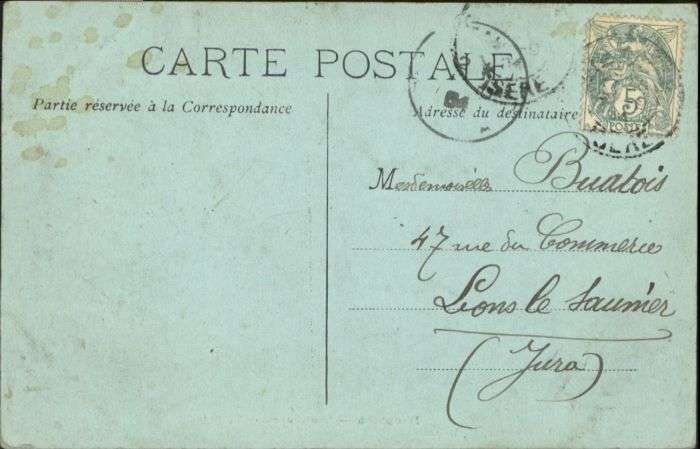 CARTE POSTALE
Partie réservée à la Correspondance
Adresse du destinataire
ISÈRE
5
POSTES
ISÈRE
Mademoiselle Buatois
47 rue du Commerce
Lons le Saunier
(Jura)